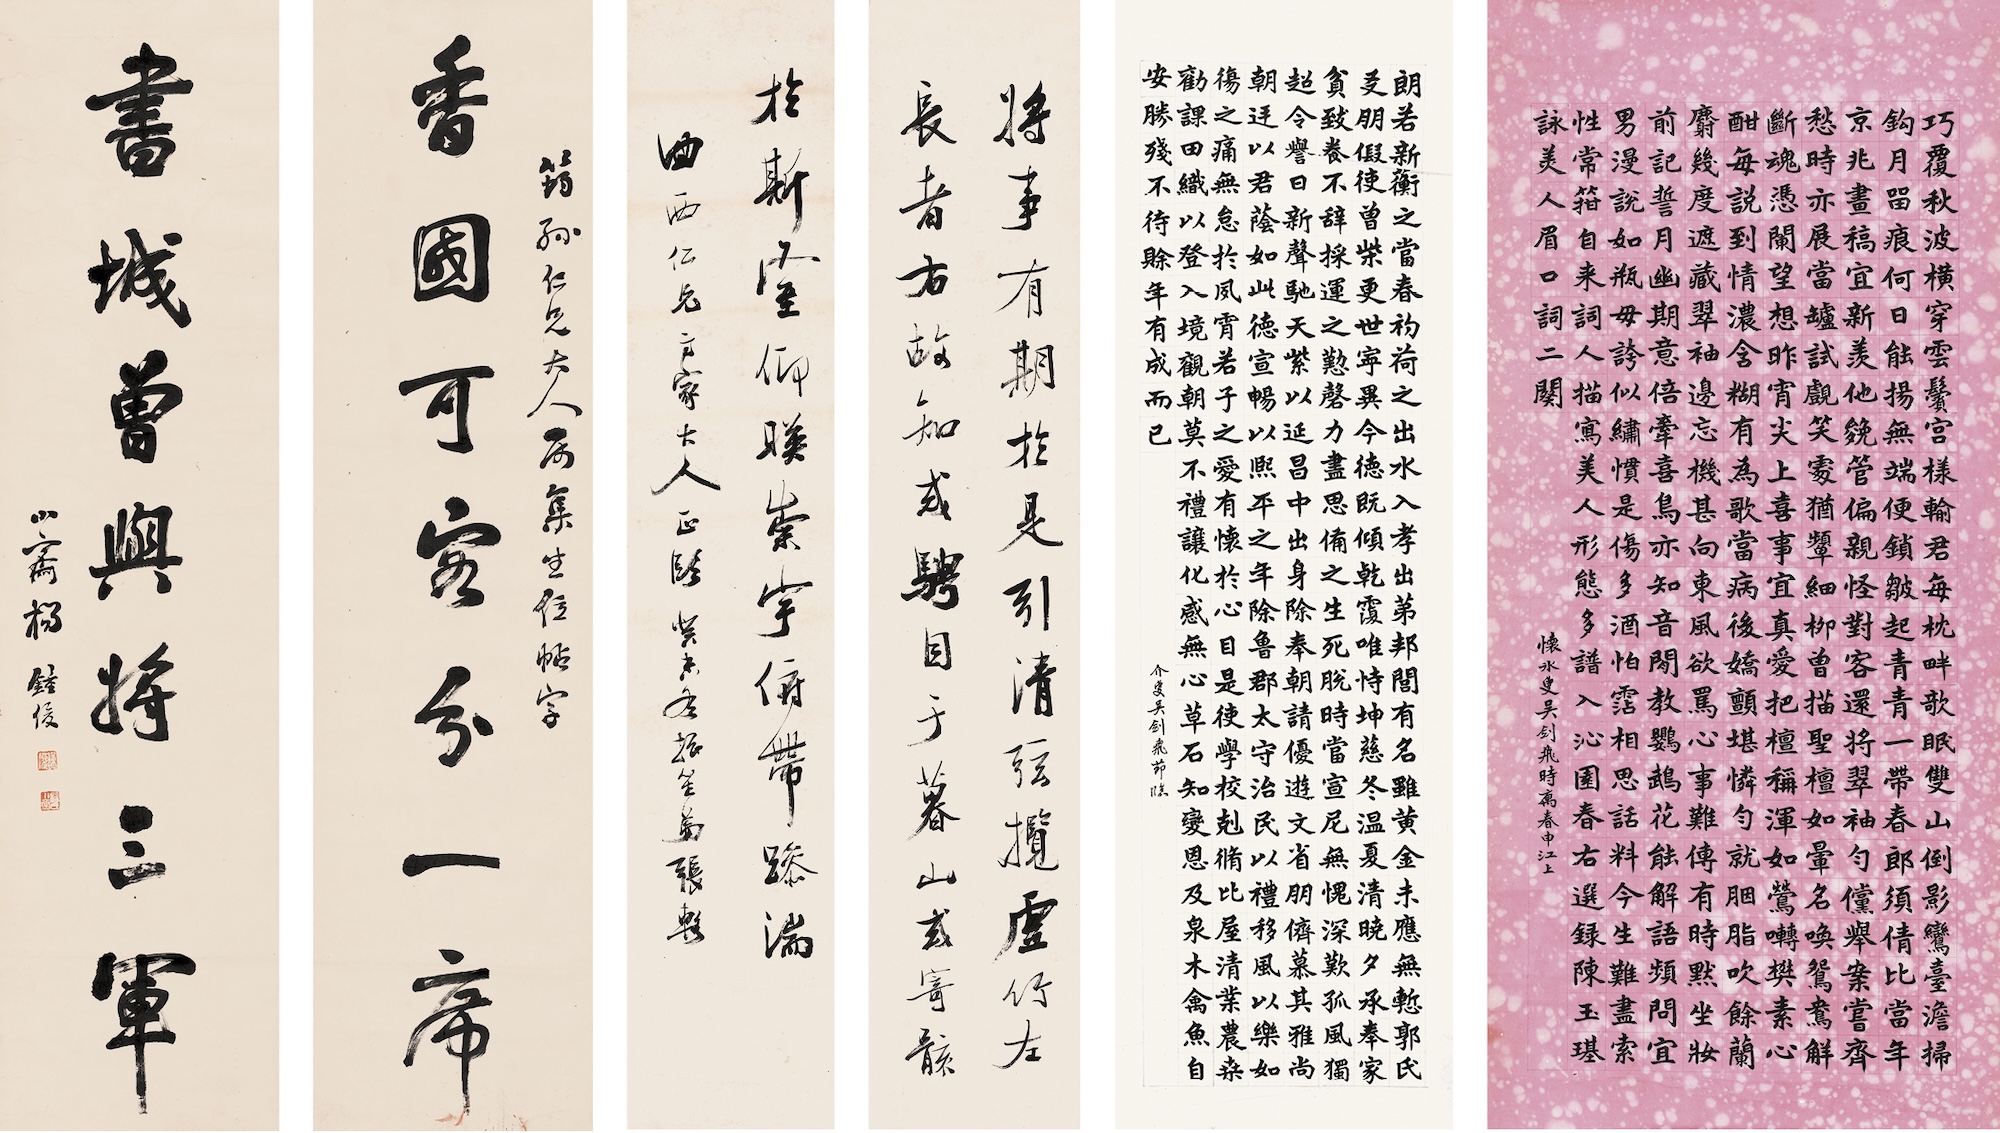 巧覆秋波橫穿雲鬢宮樣輸君每枕畔歌眠雙山倒影鸞臺澹掃
鈎月留痕何日能揚無端便鎖皺起青青一帶春郎須倩比當年
京兆畫稿宜新羨他毚管偏親怪對客還將翠袖勻儻舉案嘗齊
愁時亦展當罏試覷笑處猶顰細柳曾描聖檀如暈名喚鴛鴦解
斷魂憑闌望想昨宵尖上喜事宜真愛把檀稱渾如鶯囀樊素心
酣每説到情濃含糊有為歌當病後嬌顫堪憐勻就胭脂吹餘蘭
麝幾度遮藏翠袖邊忘機甚向東風欲罵心事難傳有時默坐妝
前記誓月幽期意倍牽喜鳥亦知音閒教鸚鵡花能解語頻問宜
男漫説如瓶毋誇似繡慣是傷多酒怕霑相思話料今生難盡索
性常箝自来詞人描寫美人形態多譜入沁園春右選録陳玉璂
詠美人眉口詞二闋
懷冰叟吴劍飛時寓春申江上
朗若新蘅之當春礿荷之出水入孝出弟邦閭有名雖黄金未應無慙郭氏
爻朋假使曾柴更世寧異今德既傾乾覆唯恃坤慈冬温夏清曉夕承奉家
貧致養不辭採運之懃磬力盡思備之生死脱時當宣尼無愧深歎孤風獨
超令譽日新聲馳天紫以延昌中出身除奉朝請優遊文省朋儕慕其雅尚
朝廷以君蔭如此德宣暢以熙平之年除魯郡太守治民以禮移風以樂如
傷之痛無怠於夙霄若子之愛有懷於心目是使學校剋脩比屋清業農桒
勸課田織以登入境觀朝莫不禮讓化感無心草石知變恩及泉木禽魚自
安勝殘不待賒年有成而已
介叟吴劍飛節臨
將事有期於是引清弦攬虛竹左
長者右故知或騁目于暮山或寄骸
於斯堂仰睒崇宇俯帶湍
西仁兄方家大人正 癸未冬 張
香國可容分一席
筠孫仁兄大人屬集坐位帖字
書城曾與將三軍
小齋楊鍾俊